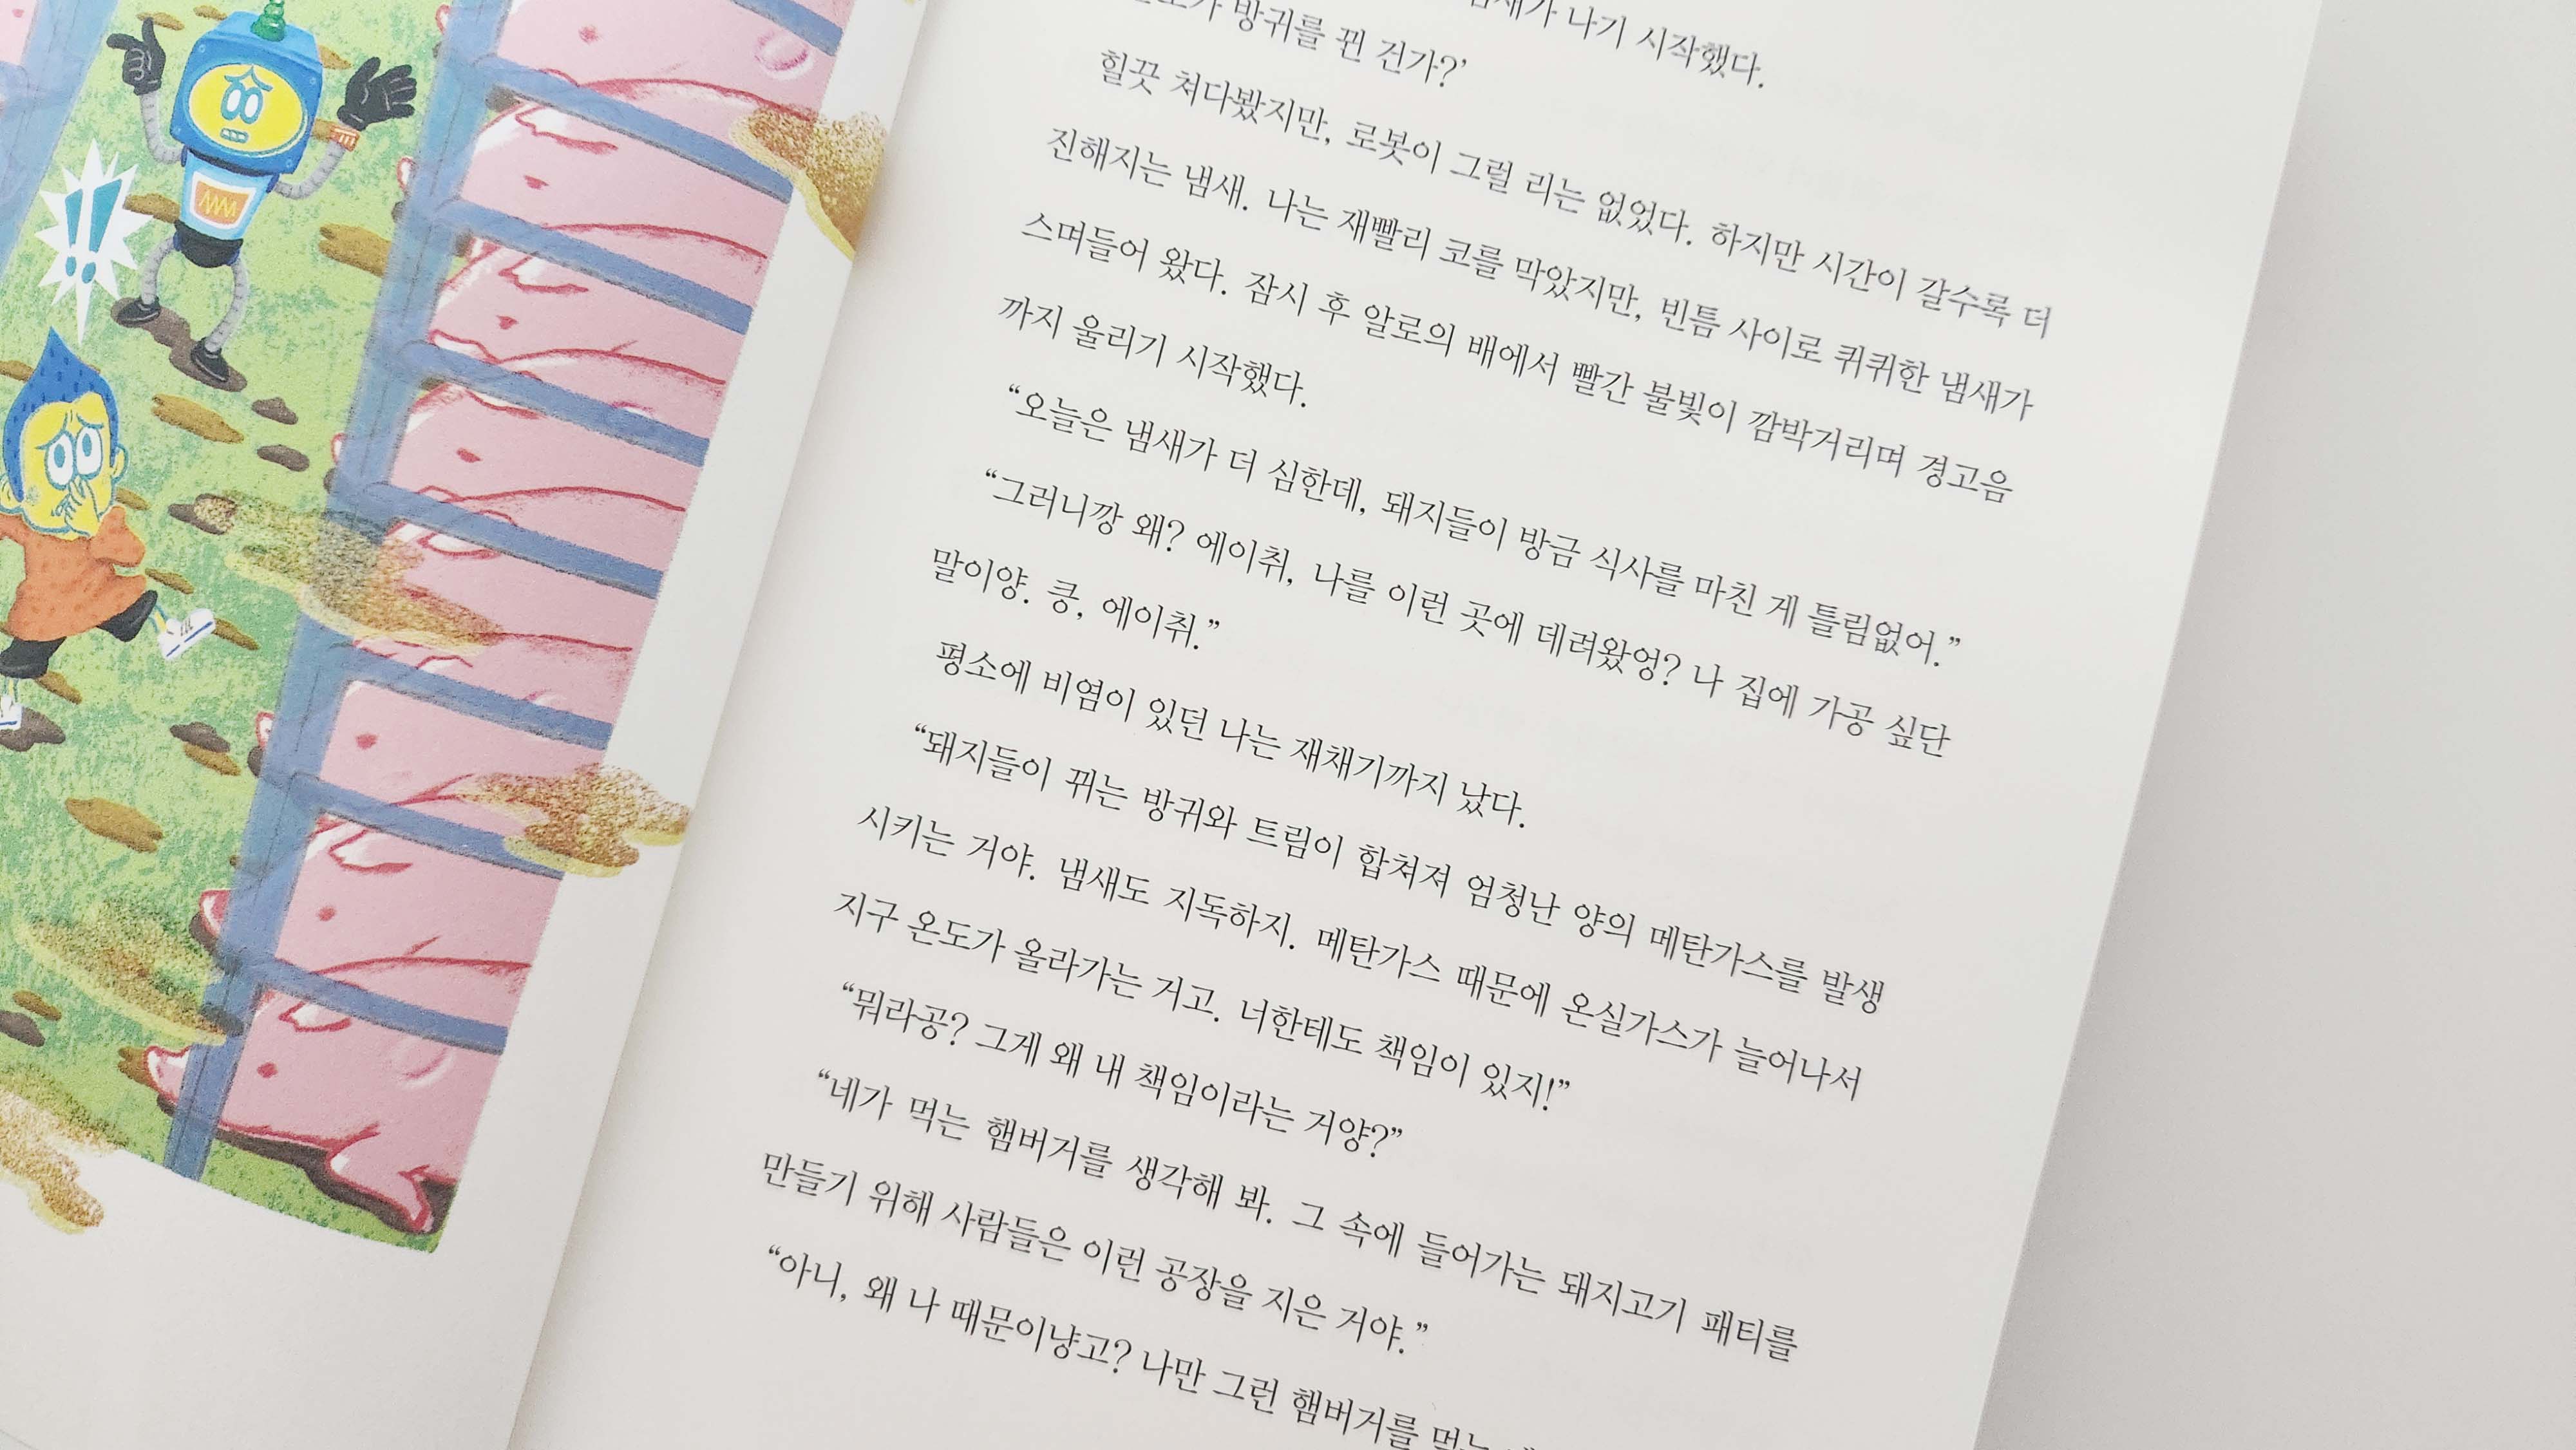 나기 시작했다.
방귀를 뀐 건가?’
힐끗 쳐다봤지만, 로봇이 그럴 리는 없었다. 하지만 시간이 갈수록 더
진해지는 냄새. 나는 재빨리 코를 막았지만, 빈틈 사이로 퀴퀴한 냄새가
스며들어 왔다. 잠시 후 알로의 배에서 빨간 불빛이 깜박거리며 경고음
까지 울리기 시작했다.
“오늘은 냄새가 더 심한데, 돼지들이 방금 식사를 마친 게 틀림없어.”
“그러니깡 왜? 에이취, 나를 이런 곳에 데려왔엉? 나 집에 가공 싶단
말이양. 킁, 에이취.”
평소에 비염이 있던 나는 재채기까지 났다.
“돼지들이 뀌는 방귀와 트림이 합쳐져 엄청난 양의 메탄가스를 발생
시키는 거야. 냄새도 지독하지. 메탄가스 때문에 온실가스가 늘어나서
지구 온도가 올라가는 거고. 너한테도 책임이 있지!”
“뭐라공? 그게 왜 내 책임이라는 거양?”
“네가 먹는 햄버거를 생각해 봐. 그 속에 들어가는 돼지고기 패티를
만들기 위해 사람들은 이런 공장을 지은 거야.”
“아니, 왜 나 때문이냥고? 나만 그런 햄버거를